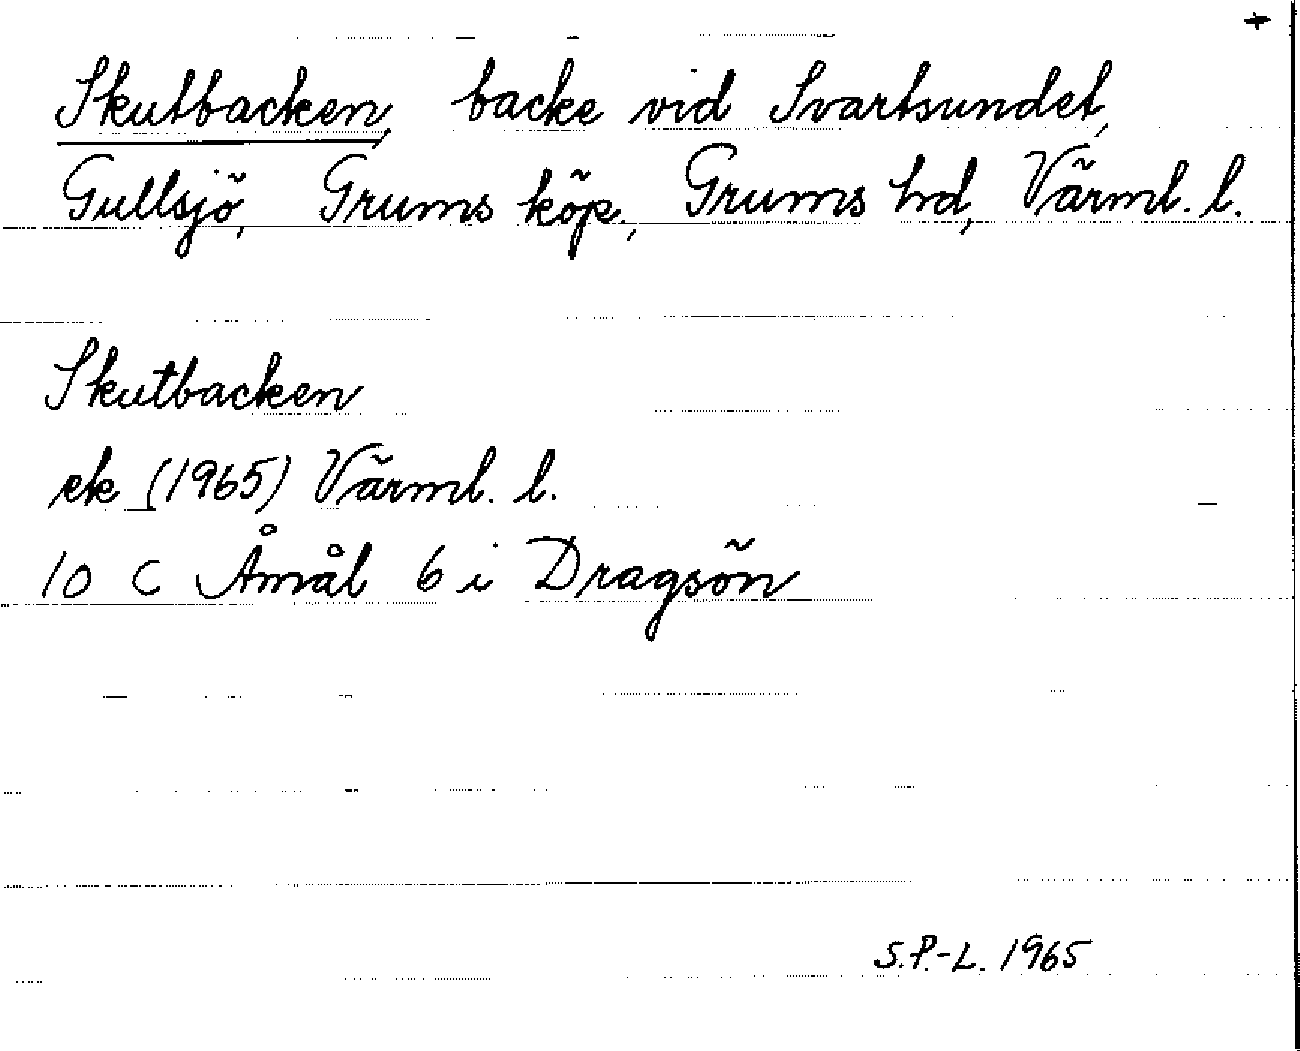 +
Skutbacken, backe vid Svartsundet,
Gullsjö, Grums köp., Grums hd, Värml. l.
Skutbacken
ek (1965) Värml. l.
10 C Åmål 6 i Dragsön
S.P.-L. 1965